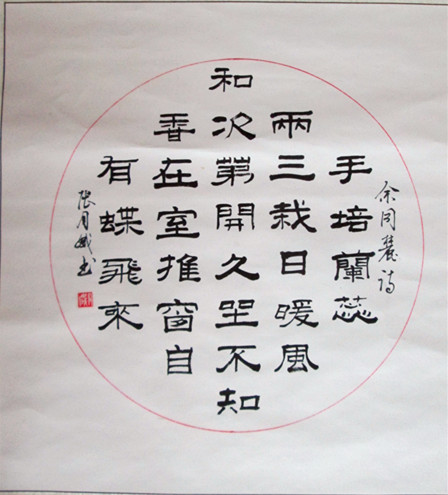 余同麓诗
手培蘭蕊
兩三栽日暖風
和次第開久坐不知
香在室推窗自
有蝶飛來
张月娥书